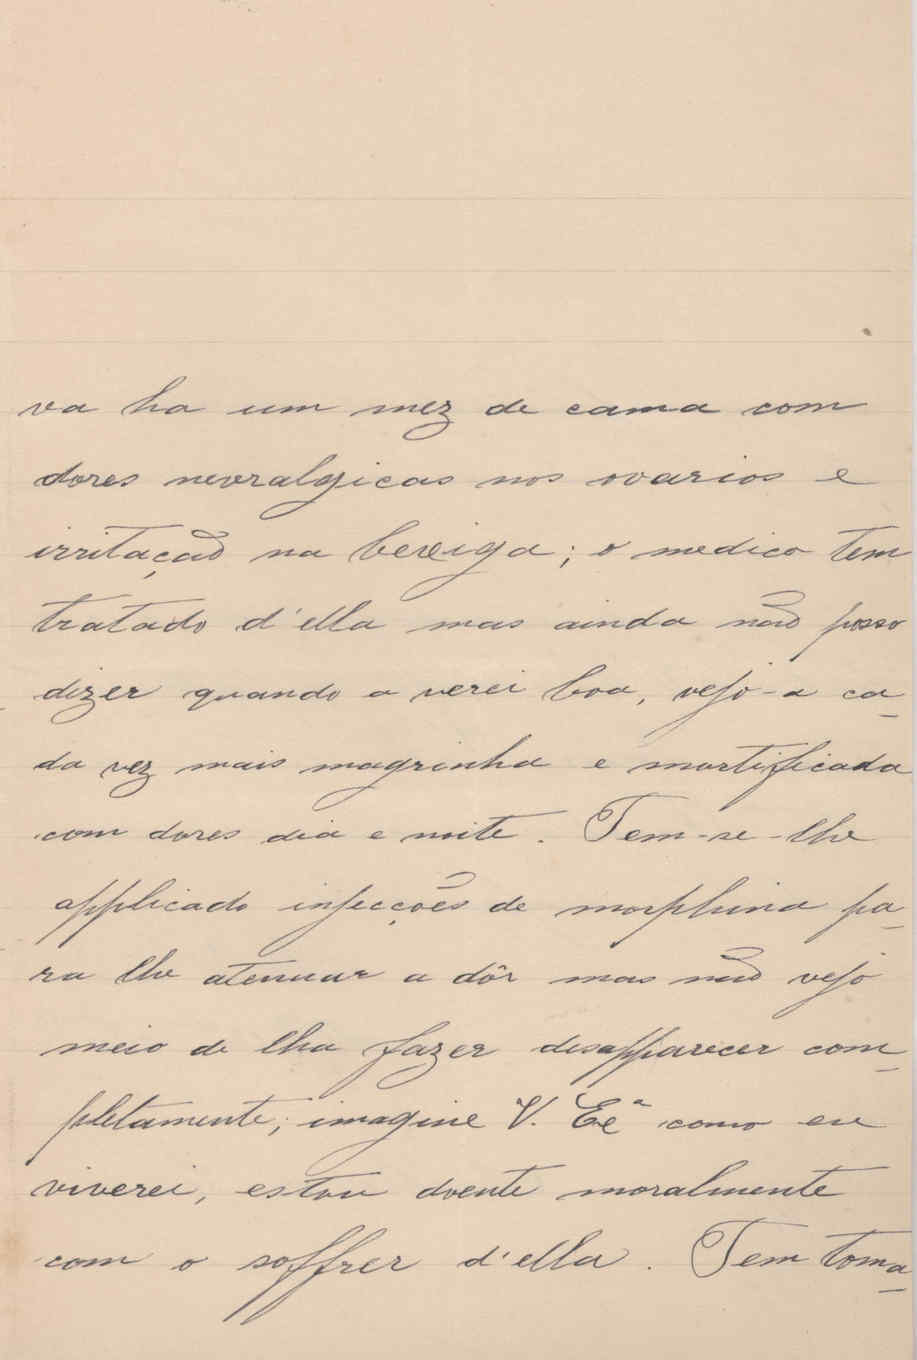 va ha um mez de cama com
dores nevralgicas nos ovarios e
irritação na bexiga; o medico tem
tratado d'ella mas ainda não posso
dizer quando a verei boa, vejo-a ca-
da vez mais magrinha e mortificada
com dores dia e noite. Tem-se-lhe
applicado injecções de morphina pa-
ra lhe atenuar a dôr mas não vejo
meio de lha fazer desapparecer com-
pletamente; imagine V. Exª como eu
viverei, estou doente moralmente
com o soffrer d'ella. Tem toma-